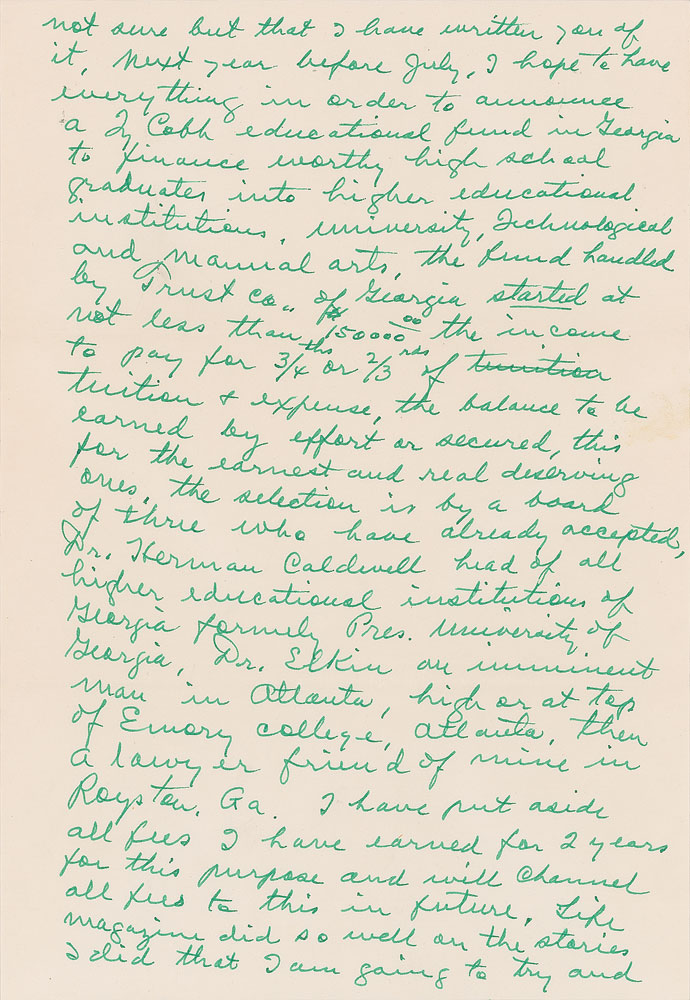 not sure but that I have written you of
it, Next year before July, I hope to have
everything in order to announce
a Ty Cobb educational fund in Georgia
to finance worthy high school
graduates into higher educational
institutions, university, Technological
and manual arts, the fund handled
by Trust Co., of Georgia started at
not less than $150000 00 the income
to pay for 3/4 ths or 2/3 rds of tunition
tuition & expense, the balance to be
earned by effort or secured, this
for the earnest and real deserving
ones, the selection is by a board
of three who have already accepted,
Dr. Herman Caldwell head of all
higher educational institutions of
Georgia formely Pres. University of
Georgia, Dr. Elkin an imminent
man in Atlanta, high or at top
of Emory college, Atlanta, then
a lawyer friend of mine in
Royston, Ga. I have put aside
all fees I have earned for 2 years
for this purpose and will channel
all fees to this in future, Life
magazine did so well on the stories
I did that I am going to try and